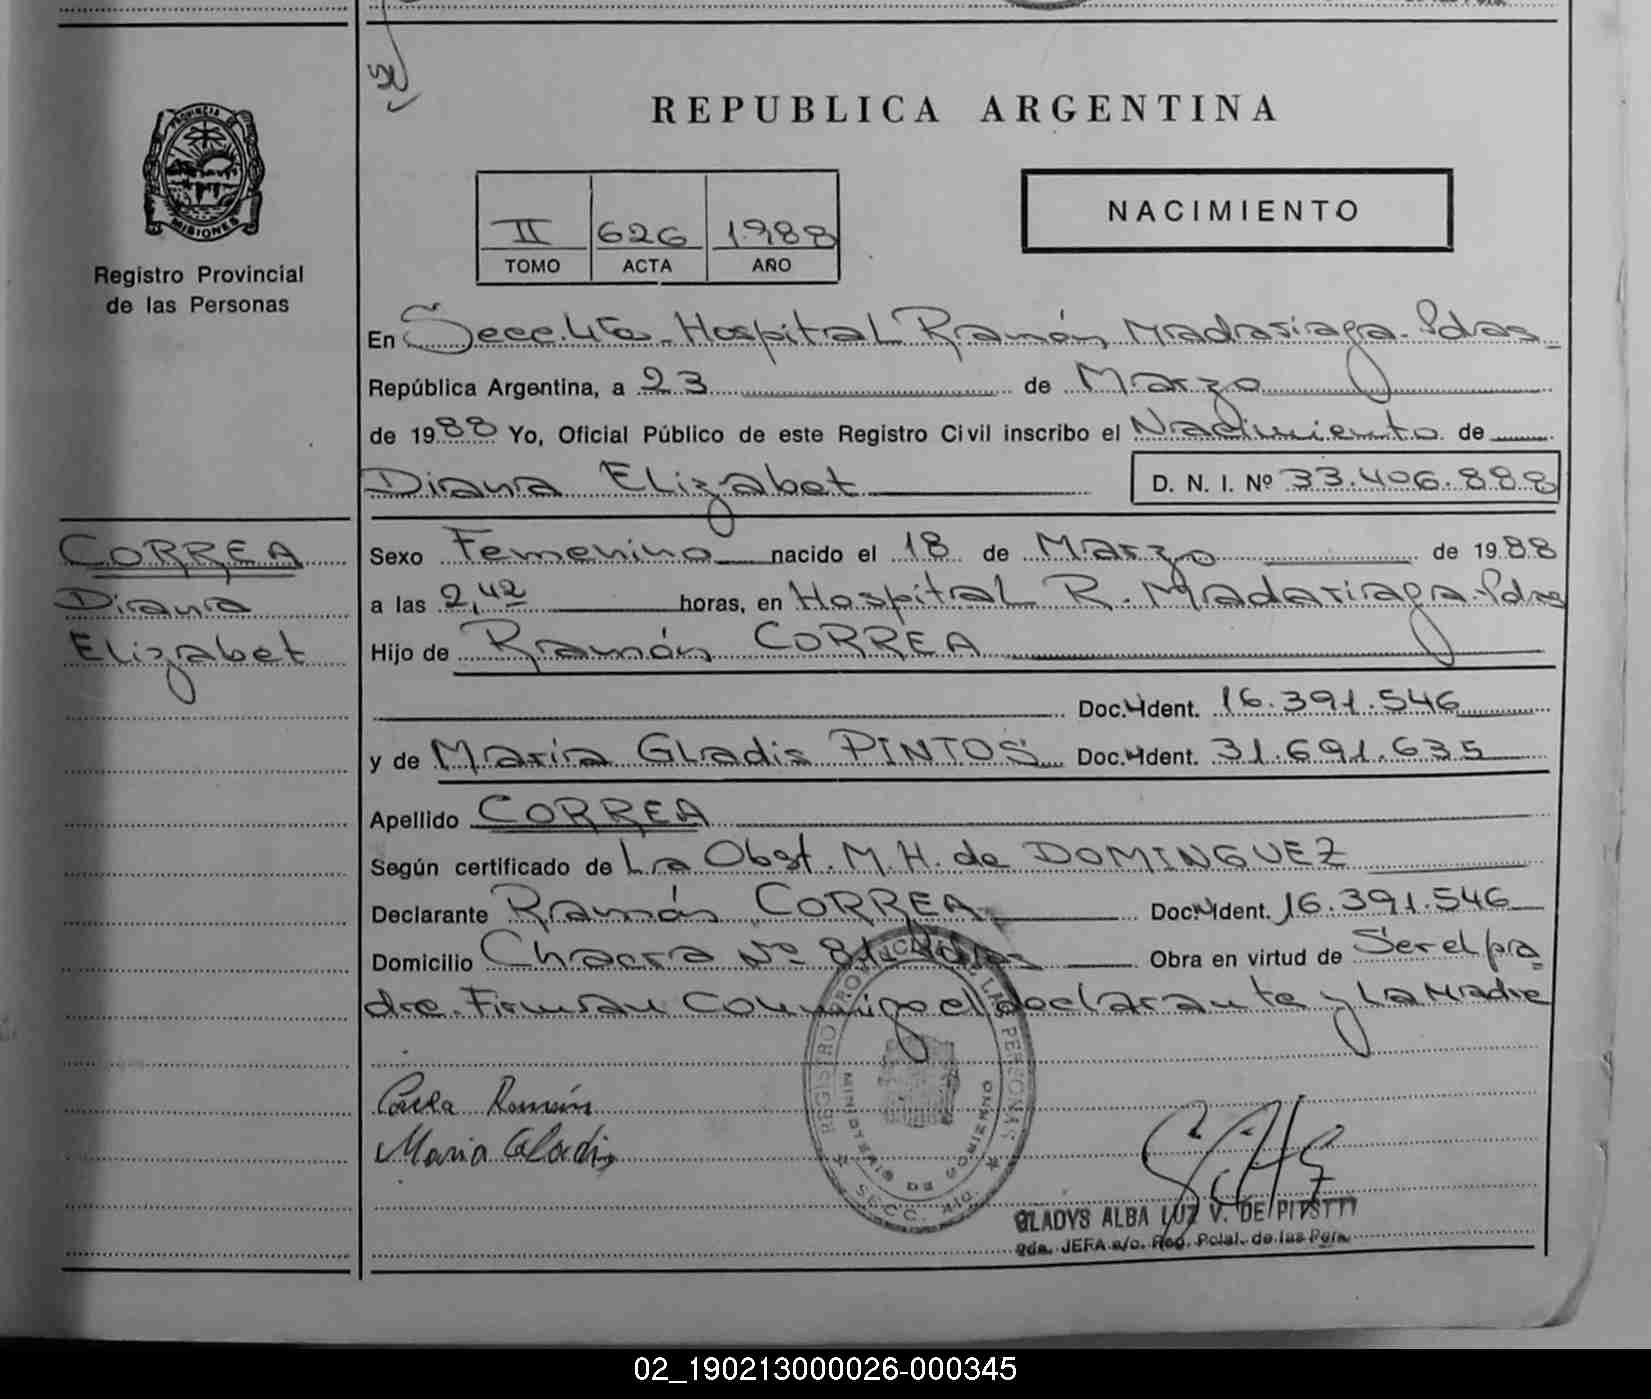 REPUBLICA ARGENTINA
PROVINCIA DE MISIONES
Registro Provincial
de las Personas
II 626 1988
TOMO ACTA AÑO
NACIMIENTO
En Secc. 4ta. Hospital Ramón Madariaga. Pdas
República Argentina, a 23 de Marzo
de 1988 Yo, Oficial Público de este Registro Civil inscribo el Nacimiento de
Diana Elizabet D. N. I. Nº 33.406.888
CORREA
Diana
Elizabet
Sexo Femenino nacido el 18 de Marzo de 1988
a las 2,42 horas, en Hospital R. Madariaga. Pdas
Hijo de Ramón CORREA
Doc. Ident. 16.391.546
y de María Gladis PINTOS Doc. Ident. 31.691.635
Apellido CORREA
Según certificado de La Obst. M. H. de DOMINGUEZ
Declarante Ramón CORREA Doc. Ident. 16.391.546
Domicilio Chacra Nº 81. Pdas Obra en virtud de Ser el pa
dre. Firman conmigo el declarante y la Madre
REGISTRO PROVINCIAL DE LAS PERSONAS
MINISTERIO DE GOBIERNO
SECC. 4ta.
Ramón
Maria Gladis
GLADYS ALBA LUZ V. DE
2da. JEFA a/c. Reg. Pcial. de las Pers.
02_190213000026-000345